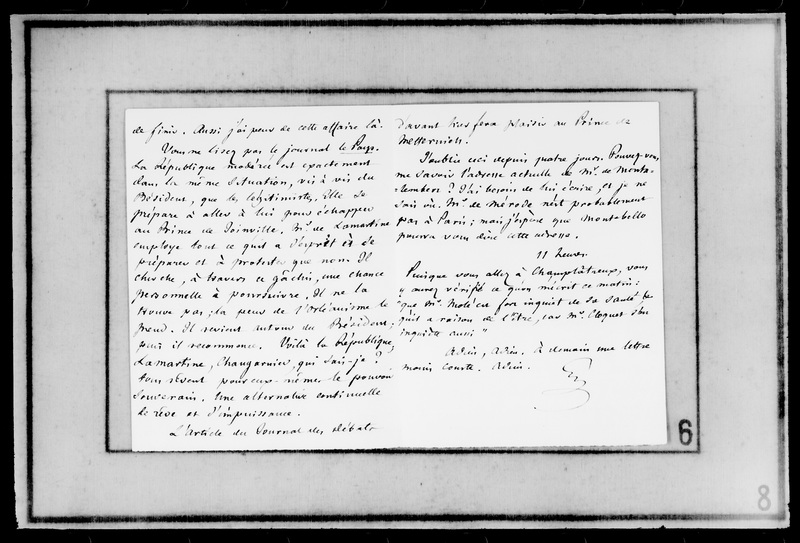 de finir. Aussi j'ai peur de cette affaire là.
Vous ne lisez pas le journal le Pays.
La République modérée est exactement
dans la même situation, vis à vis du
Président, que les légitimistes. Elle se
prépare à aller à lui pour échapper
au Prince de Joinville. Mr. de Lamartine
employe tout ce qu'il a d'esprit à se
préparer et à protester que non. Il
cherche, à travers ce gâchis, une chance
personnelle à poursuivre. Il ne la
trouve pas ; la peur de l'orléanisme le
prend. Il revient autour du Président ;
puis il recommence. Voilà la République,
Lamartine, Changarnier, qui sais-je ?
tous rêvent pour eux-mêmes le pouvoir
souverain. Une alternative continuelle
de rêve et d'impuissance.
L'article du Journal des Débats
d'avant hier fera plaisir au Prince de
Metternich.
J'oublie ceci depuis quatre jours. Pouvez-vous
me savoir l'adresse actuelle de Mr. de Monta-
lembert ? J'ai besoin de lui écrire, et je ne
sais où. Mr. de Mérode n'est probablement
pas à Paris ; mais j'espère que Montebello
pourra vous dire cette adresse.
11 heures
Puisque vous allez à Champlâtreux, vous
y aurez vérifié ce qu'on m'écrit ce matin :
"que Mr. Molé est fort inquiet de sa santé,
qu'il a raison de l'être, car Mr. Cloquet s'en
inquiète aussi"
Adieu, Adieu. à demain une lettre
moins courte. Adieu.
6
8